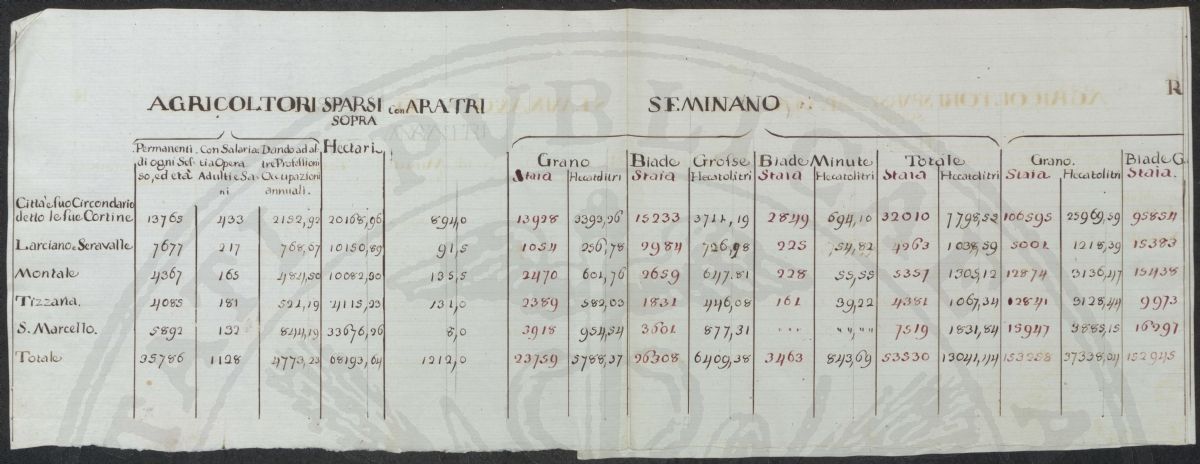 R
AGRICOLTORI SPARSI con ARATRI SEMINANO
SOPRA
Permanenti. Con Salaria. Dando ad al Hectari Grano Biade Grosse Biade Minute Totale Grano. Biade G.
di ogni Ses tia Opera tre Professioni Staia Hecatolitri Staia Hecatolitri Staia Hecatolitri Staia Hecatolitri Staia Hecatolitri Staia.
so, ed età Adulti e Sa Occupazioni
ni annuali.
Città e suo Circondario
detto le sue Cortine 13765 433 2152,92 20168,96 894,0 13928 3393,26 15233 3711,19 2849 694,10 32010 7798,52 106595 25969,59 95854
Larciano e Seravalle 7677 217 768,67 10150,89 91,5 1054 256,78 2984 726,98 225 54,82 4263 1038,59 5001 1218,39 15383
Montale 4367 165 484,50 10082,50 135,5 2470 601,76 2659 647.81 228 55,55 5357 1305,12 12874 3136,47 15438
Tizzana. 4085 181 524,19 24115,23 131,0 2389 582,03 1831 446,08 161 39,22 4381 1067,34 12841 3128,44 9973
S. Marcello. 5892 132 844,19 33676,26 8,0 3918 954,54 3601 877,31 7519 1831,84 15947 3885,15 16297
Totale 35786 1128 4773,23 1212,0 23759 5788,37 26308 6409,38 3463 843,69 53530 13041,44 153258 37338,04 152945